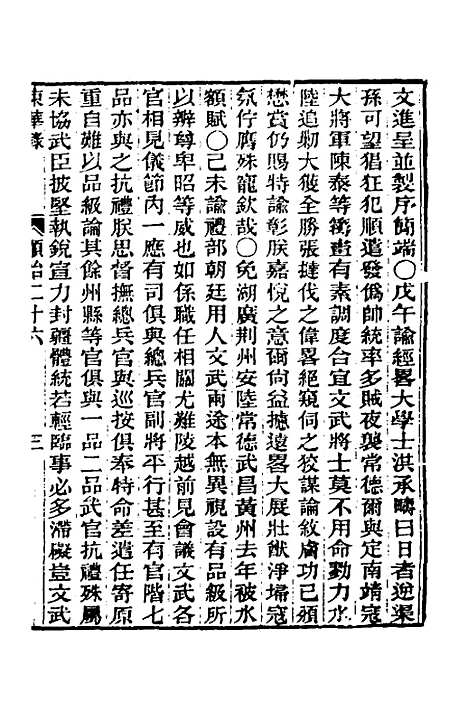 文進呈並製序簡端○戊午諭經畧大學士洪承疇曰日者逆渠
孫可望猖狂犯順遣發僞帥統率多賊夜襲常德爾與定南靖寇
大將軍陳泰等籌畫有素調度合宜文武將士莫不用命勠力水
陸追勦大獲全勝張撻伐之偉畧絕窺伺之狡謀論敘膚功已頒
懋賞仍賜特諭彰朕嘉悅之意爾尙益攄遠畧大展壯猷淨埽寇
氛佇膺殊寵欽哉○免湖廣荆州安陸常德武昌黃州去年被水
額賦○己未諭禮部朝廷用人文武兩途本無異視設有品級所
以辨尊卑昭等威也如係職任相關尤難陵越前見會議文武各
官相見儀節內一應有司俱與總兵官副將平行甚至有官階七
品亦與之抗禮朕思督撫總兵官與巡按俱奉特命差遣任寄原
重自難以品級論其餘州縣等官俱與一品二品武官抗禮殊屬
未協武臣披堅執銳宣力封疆體統若輕臨事必多滯礙豈文武
東華錄 順治二十六 三